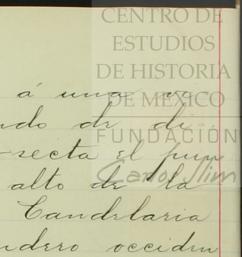 CENTRO DE
ESTUDIOS
DE HISTORIA
DE MÉXICO
FUNDACIÓN
Carlos Slim
á una ve
ndo de di
secta el pun
alto de la
Candelaria
ndero occiden